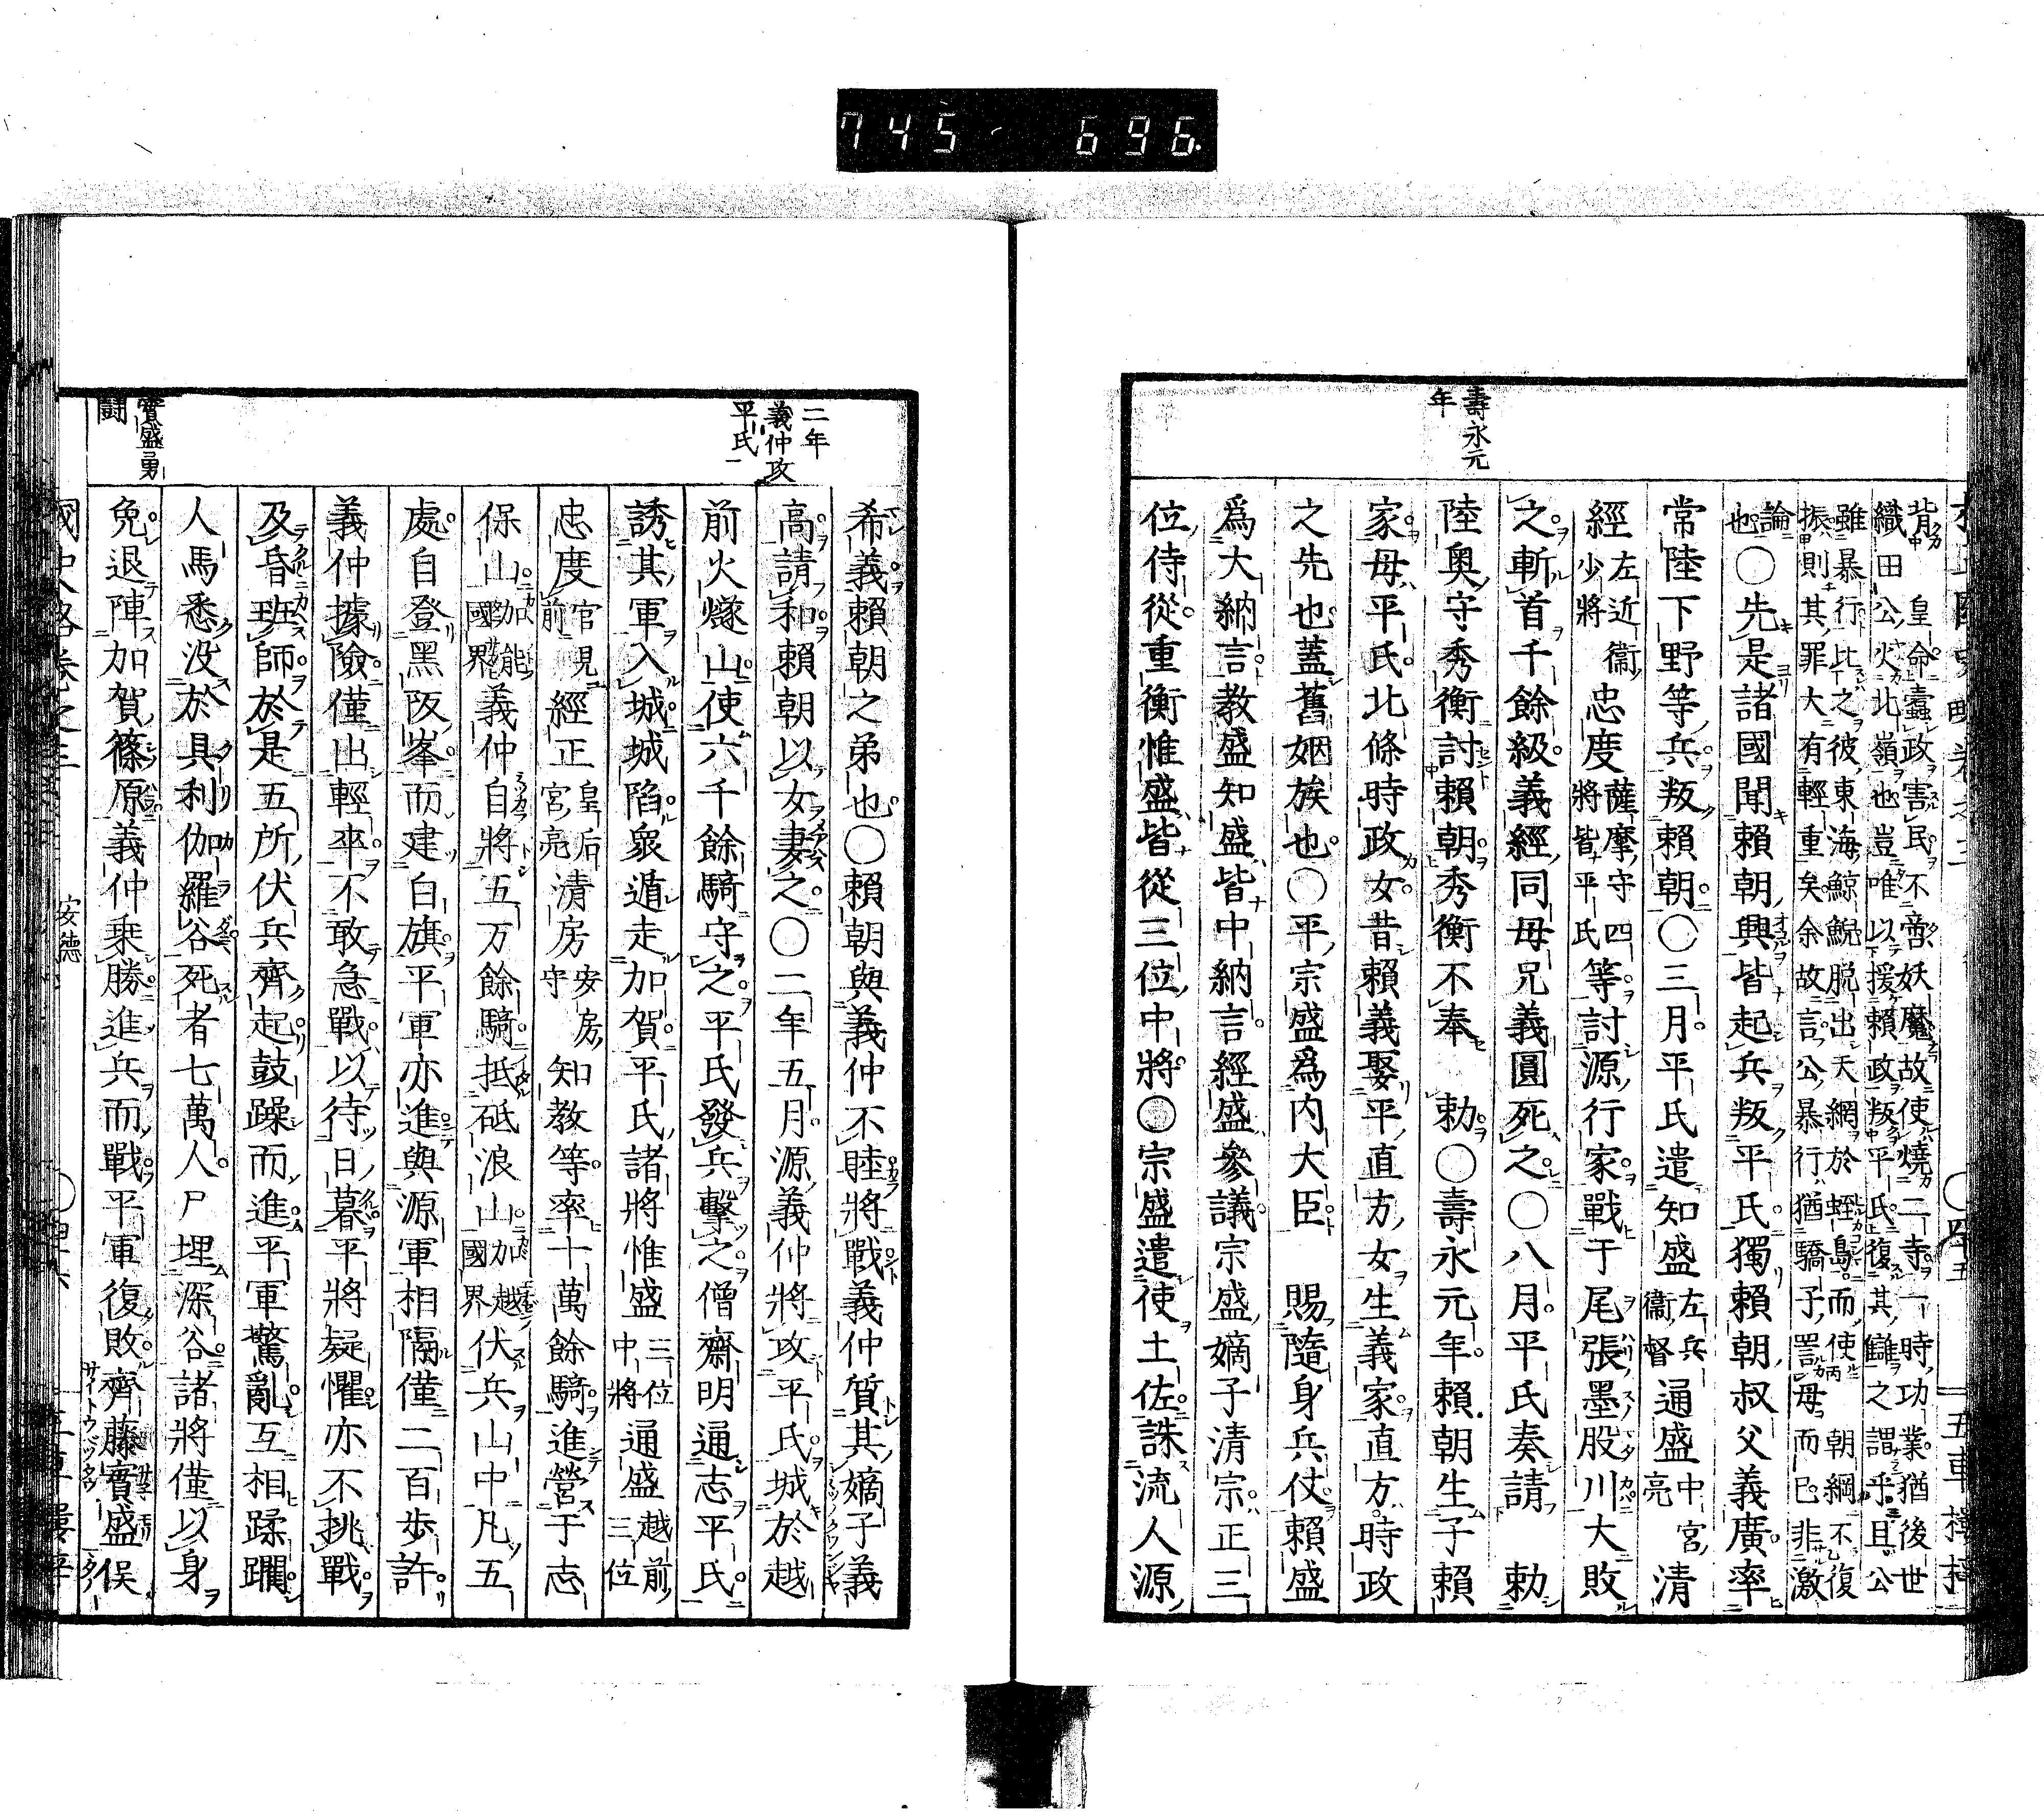 745 696
壽永元
年
背 皇命蠹政害民不啻妖魔故使燒二寺一時功業猶後世
織田公火北嶺也豈唯以援賴政叛平氏復其讎之謂乎且公
雖暴行比之彼東海鯨鯢脱出天網於蛭島而使 朝綱不復
振則其罪大有輕重矣余故言公暴行猶驕子詈母而已非激
論
也〇先是諸國聞賴朝興皆起兵叛平氏獨賴朝叔父義廣率
常陸下野等兵叛賴朝〇三月平氏遣知盛左兵衞督通盛中宮亮清
經左近衞少將忠度薩摩守四將皆平氏等討源行家戰于尾張墨股川大敗
之斬首千餘級義經同母兄義圓死之〇八月平氏奏請 勅
陸奧守秀衡討賴朝秀衡不奉 勅〇壽永元年賴朝生子賴
家母平氏北條時政女昔賴義娶平直方女生義家直方時政
之先也蓋舊姻族也〇平宗盛爲内大臣 賜隨身兵仗賴盛
爲大納言教盛知盛皆中納言經盛參議宗盛嫡子清宗正三
位侍從重衡惟盛皆從三位中將〇宗盛遣使土佐誅流人源
二年
義仲攻
平氏
希義賴朝之弟也〇賴朝與義仲不睦將戰義仲質其嫡子義
高請和賴朝以女妻之〇二年五月源義仲將攻平氏城於越
前火燧山使六千餘騎守之平氏發兵擊之僧齋明通志平氏
誘其軍入城城陷衆遁走加賀平氏諸將惟盛三位中將通盛越前三位
忠度官見前經正皇后宮亮清房安房守知教等率十萬餘騎進營于志
保山加能國界義仲自將五万餘騎抵砥浪山加越國界伏兵山中凡五
處自登黑阪峯而建白旗平軍亦進與源軍相隔僅二百步許
義仲據險僅出輕卒不敢急戰以待日暮平將疑懼亦不挑戰
及昏班師於是五所伏兵齊起鼓躁而進平軍驚亂互相蹂躙
人馬悉沒於具利伽羅谷死者七萬人尸埋深谷諸將僅以身
免退陣加賀篠原義仲乘勝進兵而戰平軍復敗齊藤實盛俣
實盛勇
鬪
安德